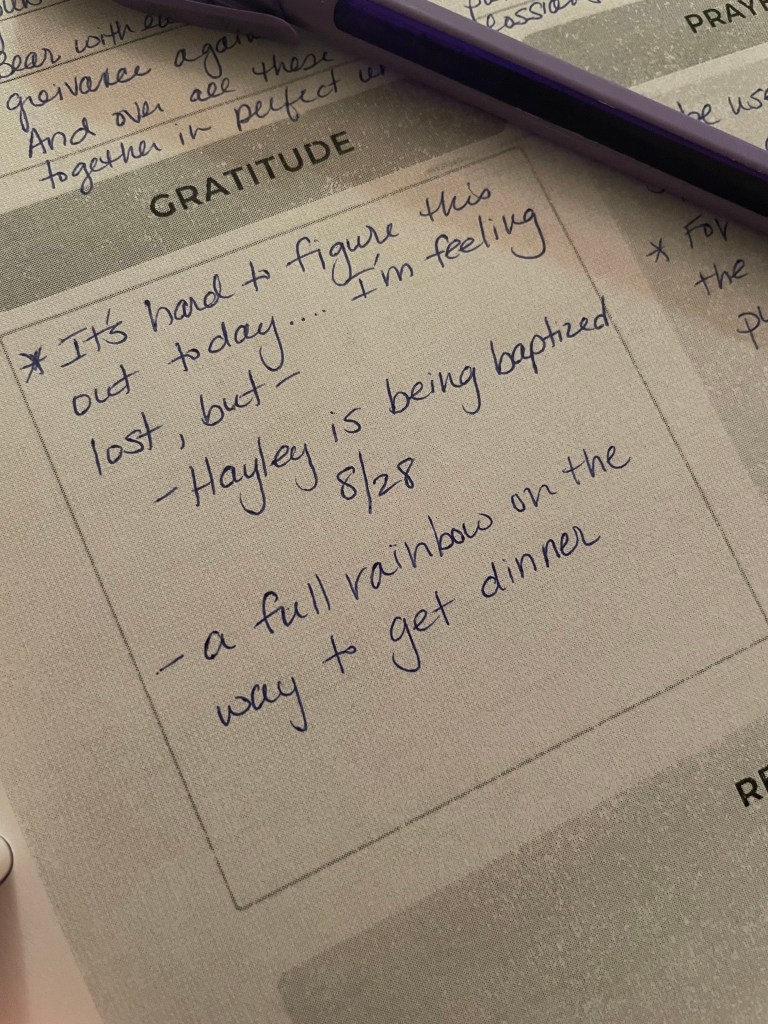 Bear with ea
greivance again
And over all these
together in perfect un
PRAYE
be use
GRATITUDE
* It's hard to figure this
out today.... I'm feeling
lost, but -
- Hayley is being baptized
8/28
- a full rainbow on the
way to get dinner
* For
the
pu
RE